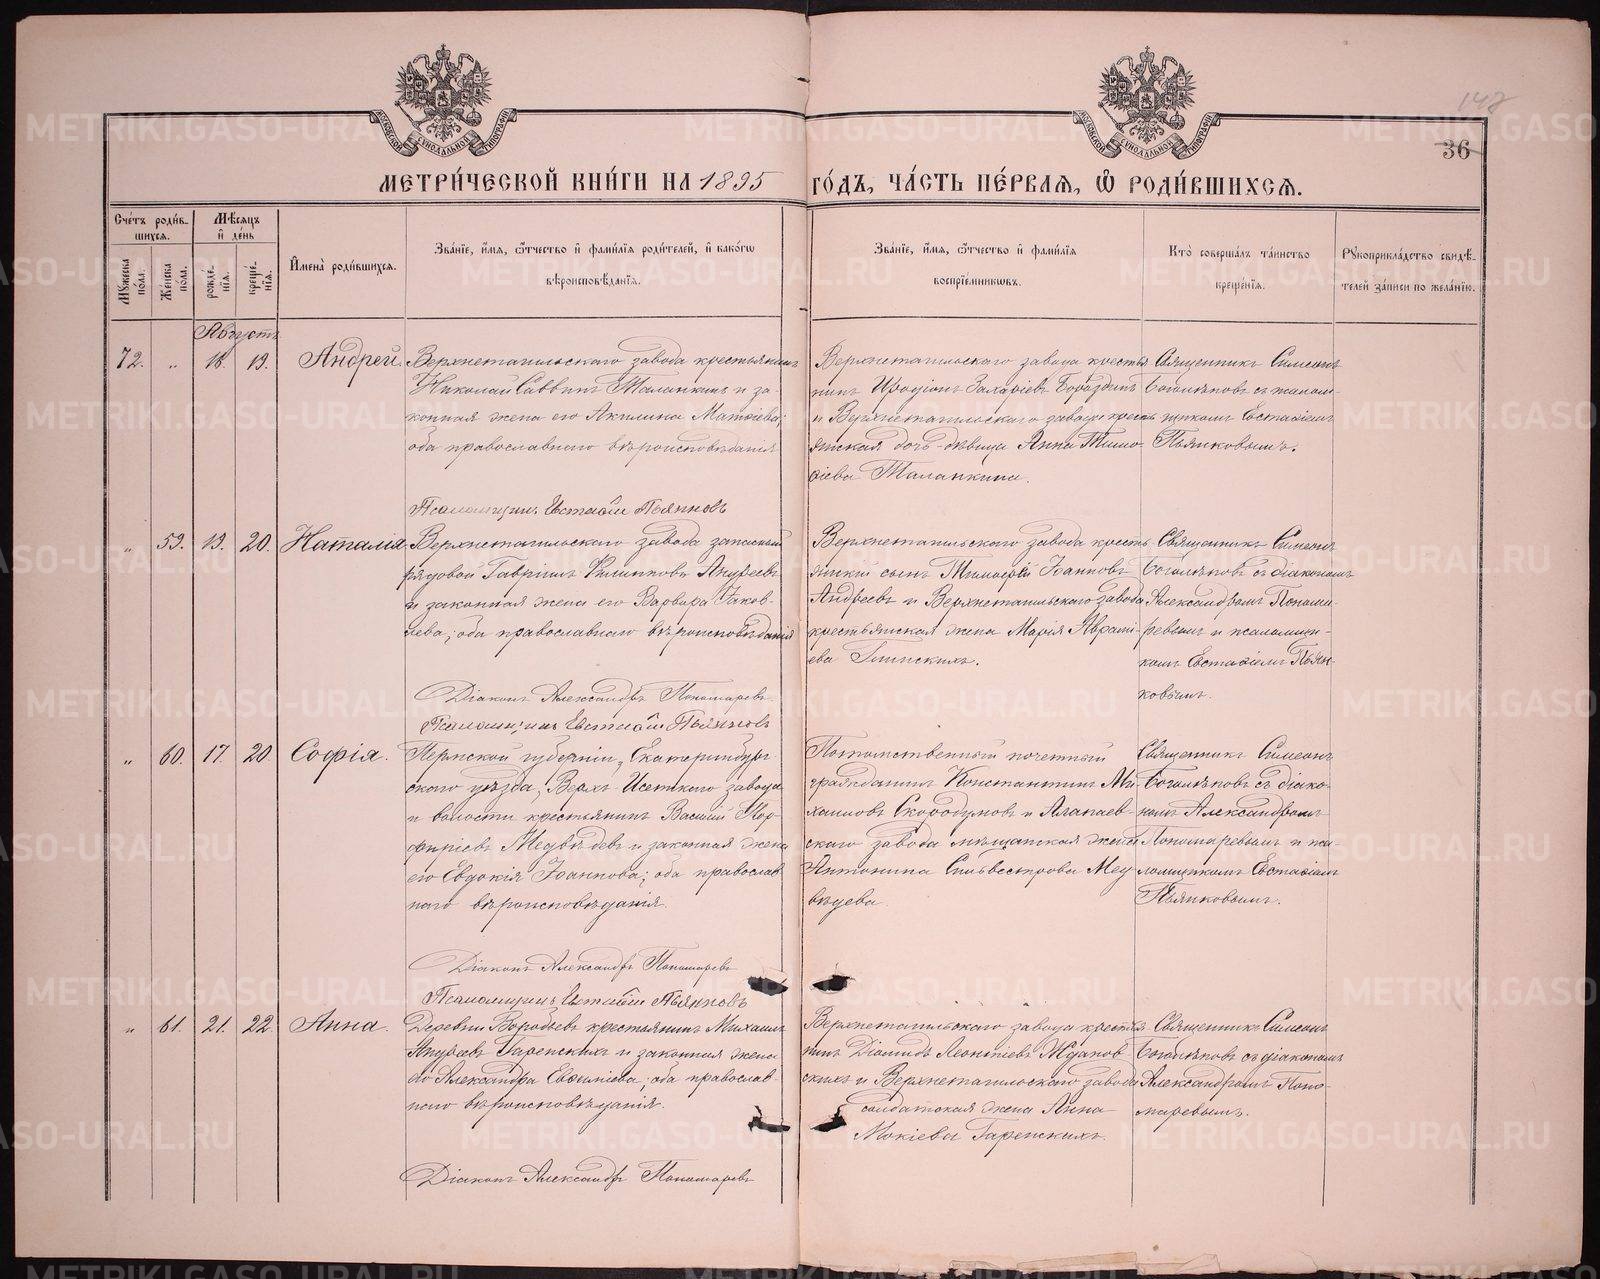 148
36
МОСКОВСКОЙ СѴНОДАЛЬНОЙ ТИПОГРАФІИ
МОСКОВСКОЙ СѴНОДАЛЬНОЙ ТИПОГРАФІИ
МЕТРИ́ЧЕСКОЙ КНИ́ГИ НА 1895 ГО́ДЪ, ЧА́СТЬ ПЕ́РВАЯ, Ѡ РОДИ́ВШИХСЯ.
Счетъ родив-
шихся.
Мѣсяцъ
и день
Мужеска пола.
Женска пола.
рожде-
нія.
креще-
нія.
Имена родившихся.
Званіе, имя, отчество и фамилія родителей, и какого
вѣроисповѣданія.
Званіе, имя, отчество и фамилія
воспріемниковъ.
Кто совершалъ таинство
крещенія.
Рукоприкладство свидѣ-
телей записи по желанію.
Августъ
72. " 18. 19. Андрей.
Верхнетагильскаго завода крестьянинъ
Николай Саввинъ Таланкинъ и за-
конная жена его Акилина Матѳіева;
оба православнаго вѣроисповѣданія
Псаломщикъ Евстаѳій Пьянковъ
Верхнетагильскаго завода кресть
нинъ Иродіонъ Захаріевъ Бороздинъ
и Верхнетагильскаго завода кресть
янская дочь-дѣвица Анна Тимо-
ѳіева Таланкина.
Священникъ Симеонъ
Боголѣповъ съ псалом-
щикомъ Евстаѳіемъ
Пьянковымъ.
" 59. 19. 20. Наталія
Верхнетагильскаго завода запасный
рядовой Гавріилъ Филипповъ Андреевъ
и законная жена его Варвара Іаков-
лева; оба православнаго вѣроисповѣданія
Діаконъ Александръ Пономаревъ
Псаломщикъ Евстаѳій Пьянковъ
Верхнетагильскаго завода кресть
янскій сынъ Тимоѳей Іоанновъ
Андреевъ и Верхнетагильскаго завода
крестьянская жена Марія Аврамі-
ева Глинскихъ.
Священникъ Симеонъ
Боголѣповъ съ діакономъ
Александромъ Понома-
ревымъ и псаломщи-
комъ Евстаѳіемъ Пьян-
ковымъ.
" 60. 17. 20. Софія.
Пермской губерніи, Екатеринбург-
скаго уѣзда, Верхъ-Исетскаго завода
и волости крестьянинъ Василій Пор-
фиріевъ Медвѣдевъ и законная жена
его Евдокія Іоаннова; оба православ
наго вѣроисповѣданія.
Діаконъ Александръ Пономаревъ
Псаломщикъ Евстаѳій Пьянковъ
Потомственный почетный
гражданинъ Константинъ Ми-
хаиловъ Скородумовъ и Алапаев-
скаго завода мѣщанская жена
Антонина Сильвестрова Мед
вѣдева.
Священникъ Симеонъ
Боголѣповъ съ діако-
номъ Александромъ
Пономаревымъ и пса-
ломщикомъ Евстаѳіемъ
Пьянковымъ.
" 61. 21. 22. Анна.
Деревни Воробьевъ крестьянинъ Михаилъ
Андреевъ Гаренскихъ и законная жена
его Александра Евѳиміева; оба православ-
наго вѣроисповѣданія.
Діаконъ Александръ Пономаревъ
Верхнетагильскаго завода крестья
нинъ Діомидъ Леонтіевъ Ждановскихъ
и Верхнетагильскаго завода
солдатская жена Анна
Мокіева Гаренскихъ.
Священникъ Симеонъ
Боголѣповъ съ діакономъ
Александромъ Поно-
маревымъ.
METRIKI.GASO-URAL.RU